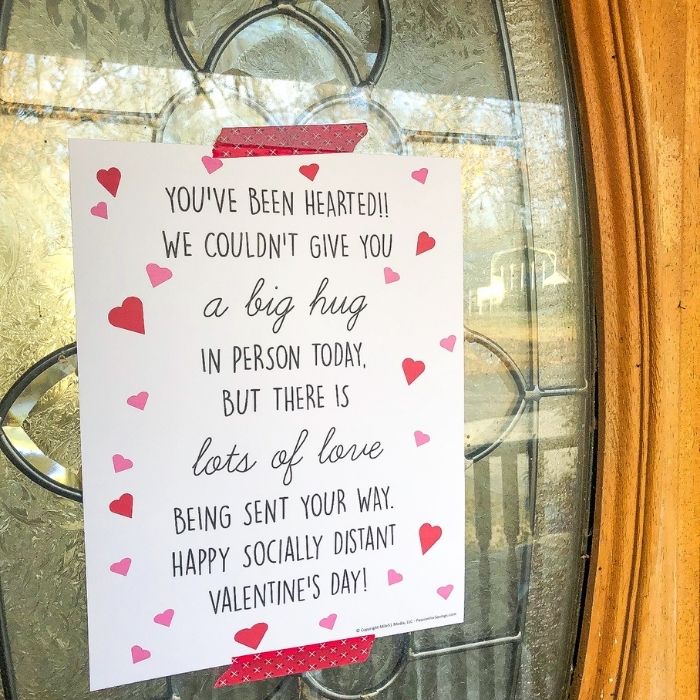 YOU'VE BEEN HEARTED!!
WE COULDN'T GIVE YOU
a big hug
IN PERSON TODAY,
BUT THERE IS
lots of love
BEING SENT YOUR WAY.
HAPPY SOCIALLY DISTANT
VALENTINE'S DAY!